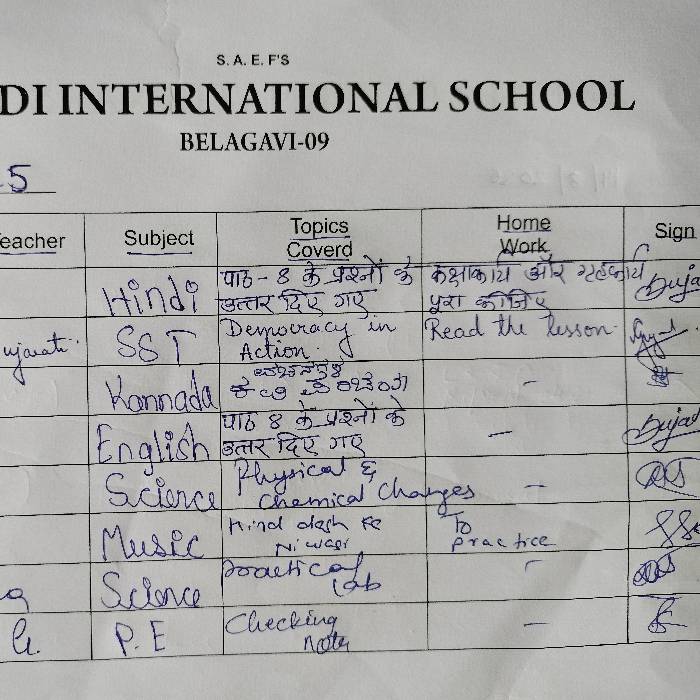 S. A. E. F'S
DI INTERNATIONAL SCHOOL
BELAGAVI-09
-5
eacher Subject Topics Coverd Home Work Sign
Hindi पाठ - 8 के प्रश्नों के कक्षाकार्य और गृहकार्य
उत्तर दिए गए पूरा कीजिए
ujarati. SST Democracy in Read the lesson.
Action.
Kannada
English पाठ 8 के प्रश्नों के -
उत्तर दिए गए
Science Physical &
Chemical Changes -
Music Hind desh ke To
Niwasi practice
Science Practical -
Lab
G. P.E Checking -
Note